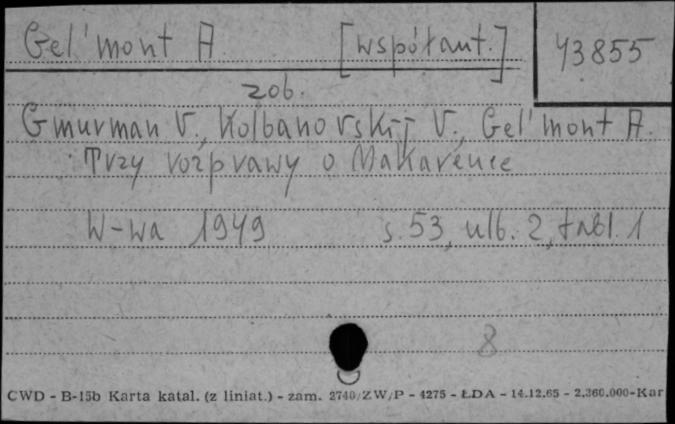 Gel'mont A. [współaut.] 43855
zob.
Gmurman V., Kolbanovskij V., Gel'mont A.
Trzy rozprawy o Makarence
W-wa 1949 s. 53, ulb. 2, tabl. 1
8
CWD - B-15b Karta katal. (z liniat.) - zam. 2740/ZW/P - 4275 - ŁDA - 14.12.65 - 2.360.000-Kar